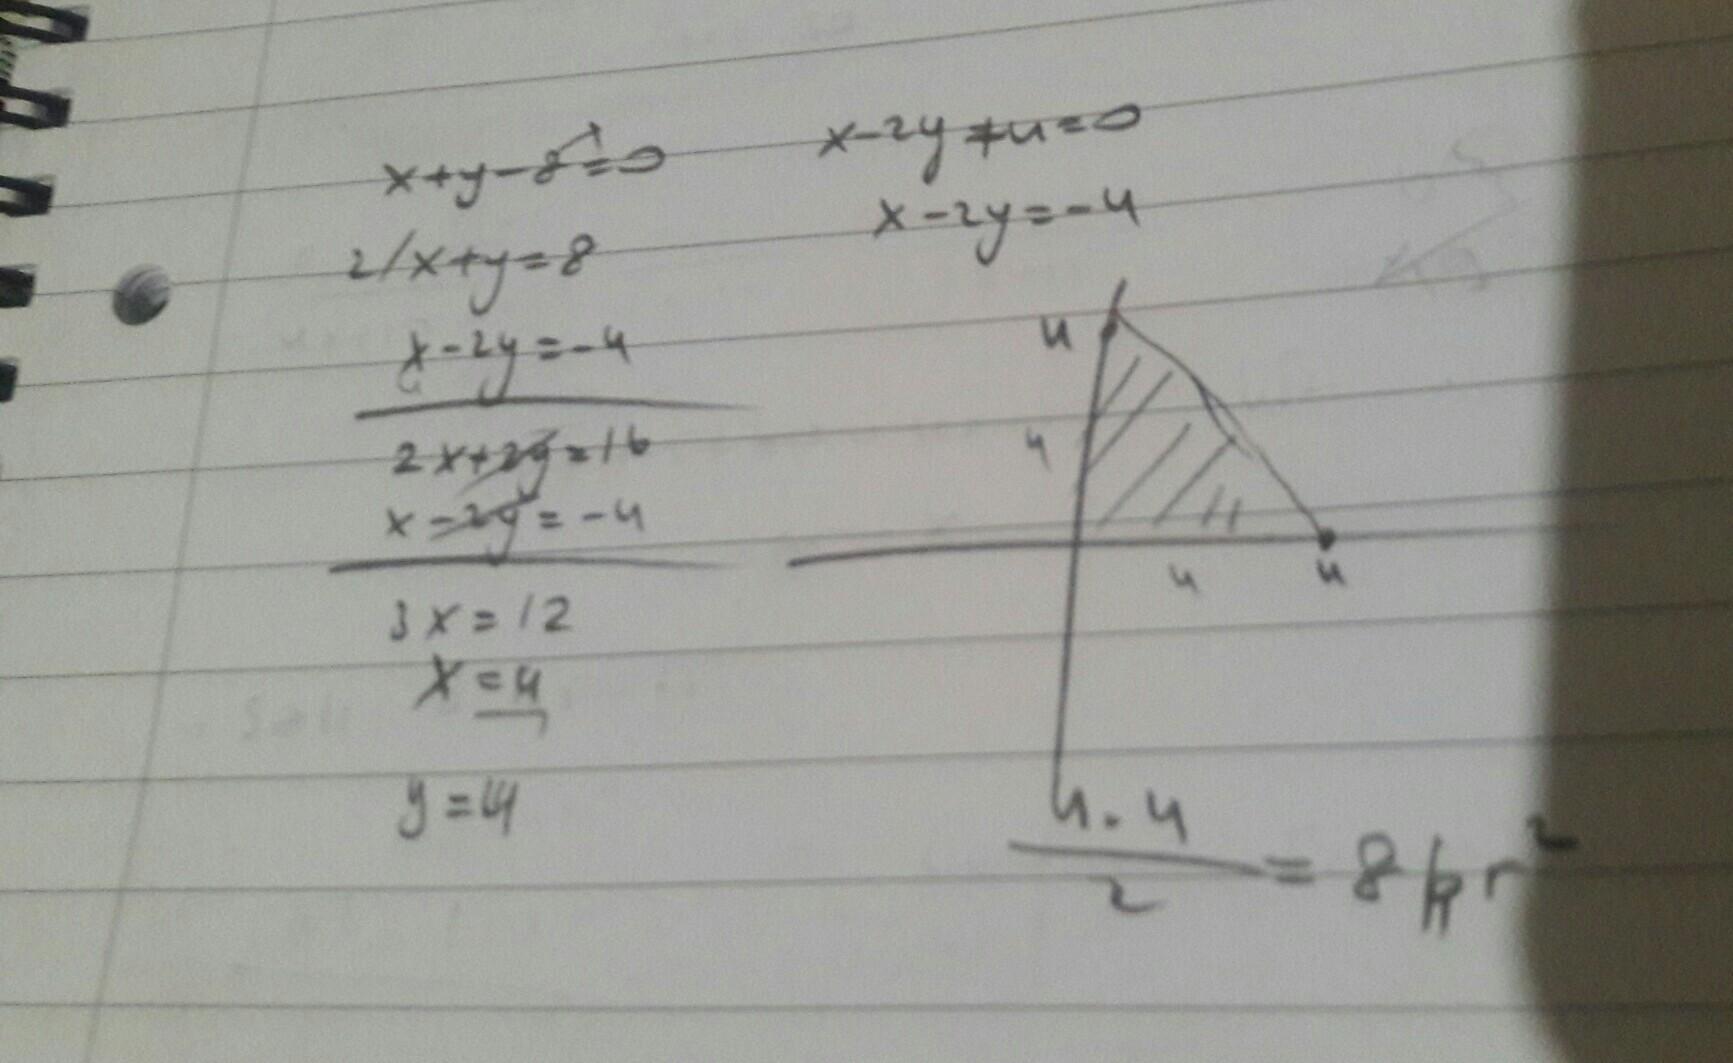 x+y-8=0
2/x+y=8
x-2y=-4
2x+2y=16
x-2y=-4
3x=12
x=4
y=4
x-2y+4=0
x-2y=-4
4
4
4
4
4.4
2
= 8 br²